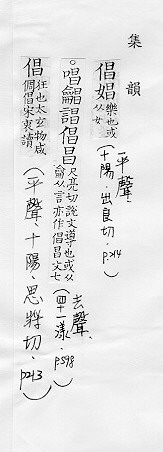 集韻
倡娼樂也或从女(平聲、十陽、出良切、p.214)
。唱龤誯倡昌尺亮切說文導也或从龠从言亦作倡昌文七(去聲、四十一漾、p.598)
倡狂也太玄物咸倜倡宋衷讀(平聲、十陽、思將切、p.213)